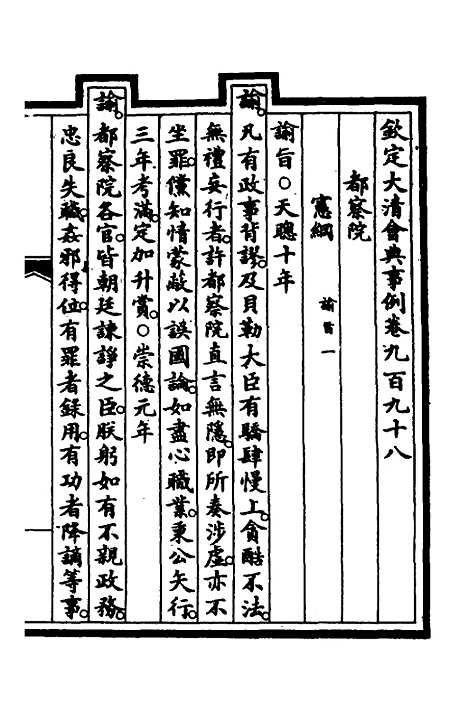 欽定大清會典事例卷九百九十八
都察院
憲綱 諭旨一
諭旨○天聰十年
諭。凡有政事背謬。及貝勒大臣有驕肆慢上。貪酷不法。
無禮妄行者。許都察院直言無隱。即所奏涉虛。亦不
坐罪。儻知情蒙蔽以誤國論。如盡心職業。秉公矢行。
三年考滿。定加升賞。○崇德元年
諭。都察院各官。皆朝廷諫諍之臣。朕躬如有不親政務。
忠良失職。姦邪得位。有罪者錄用。有功者降謫等事。